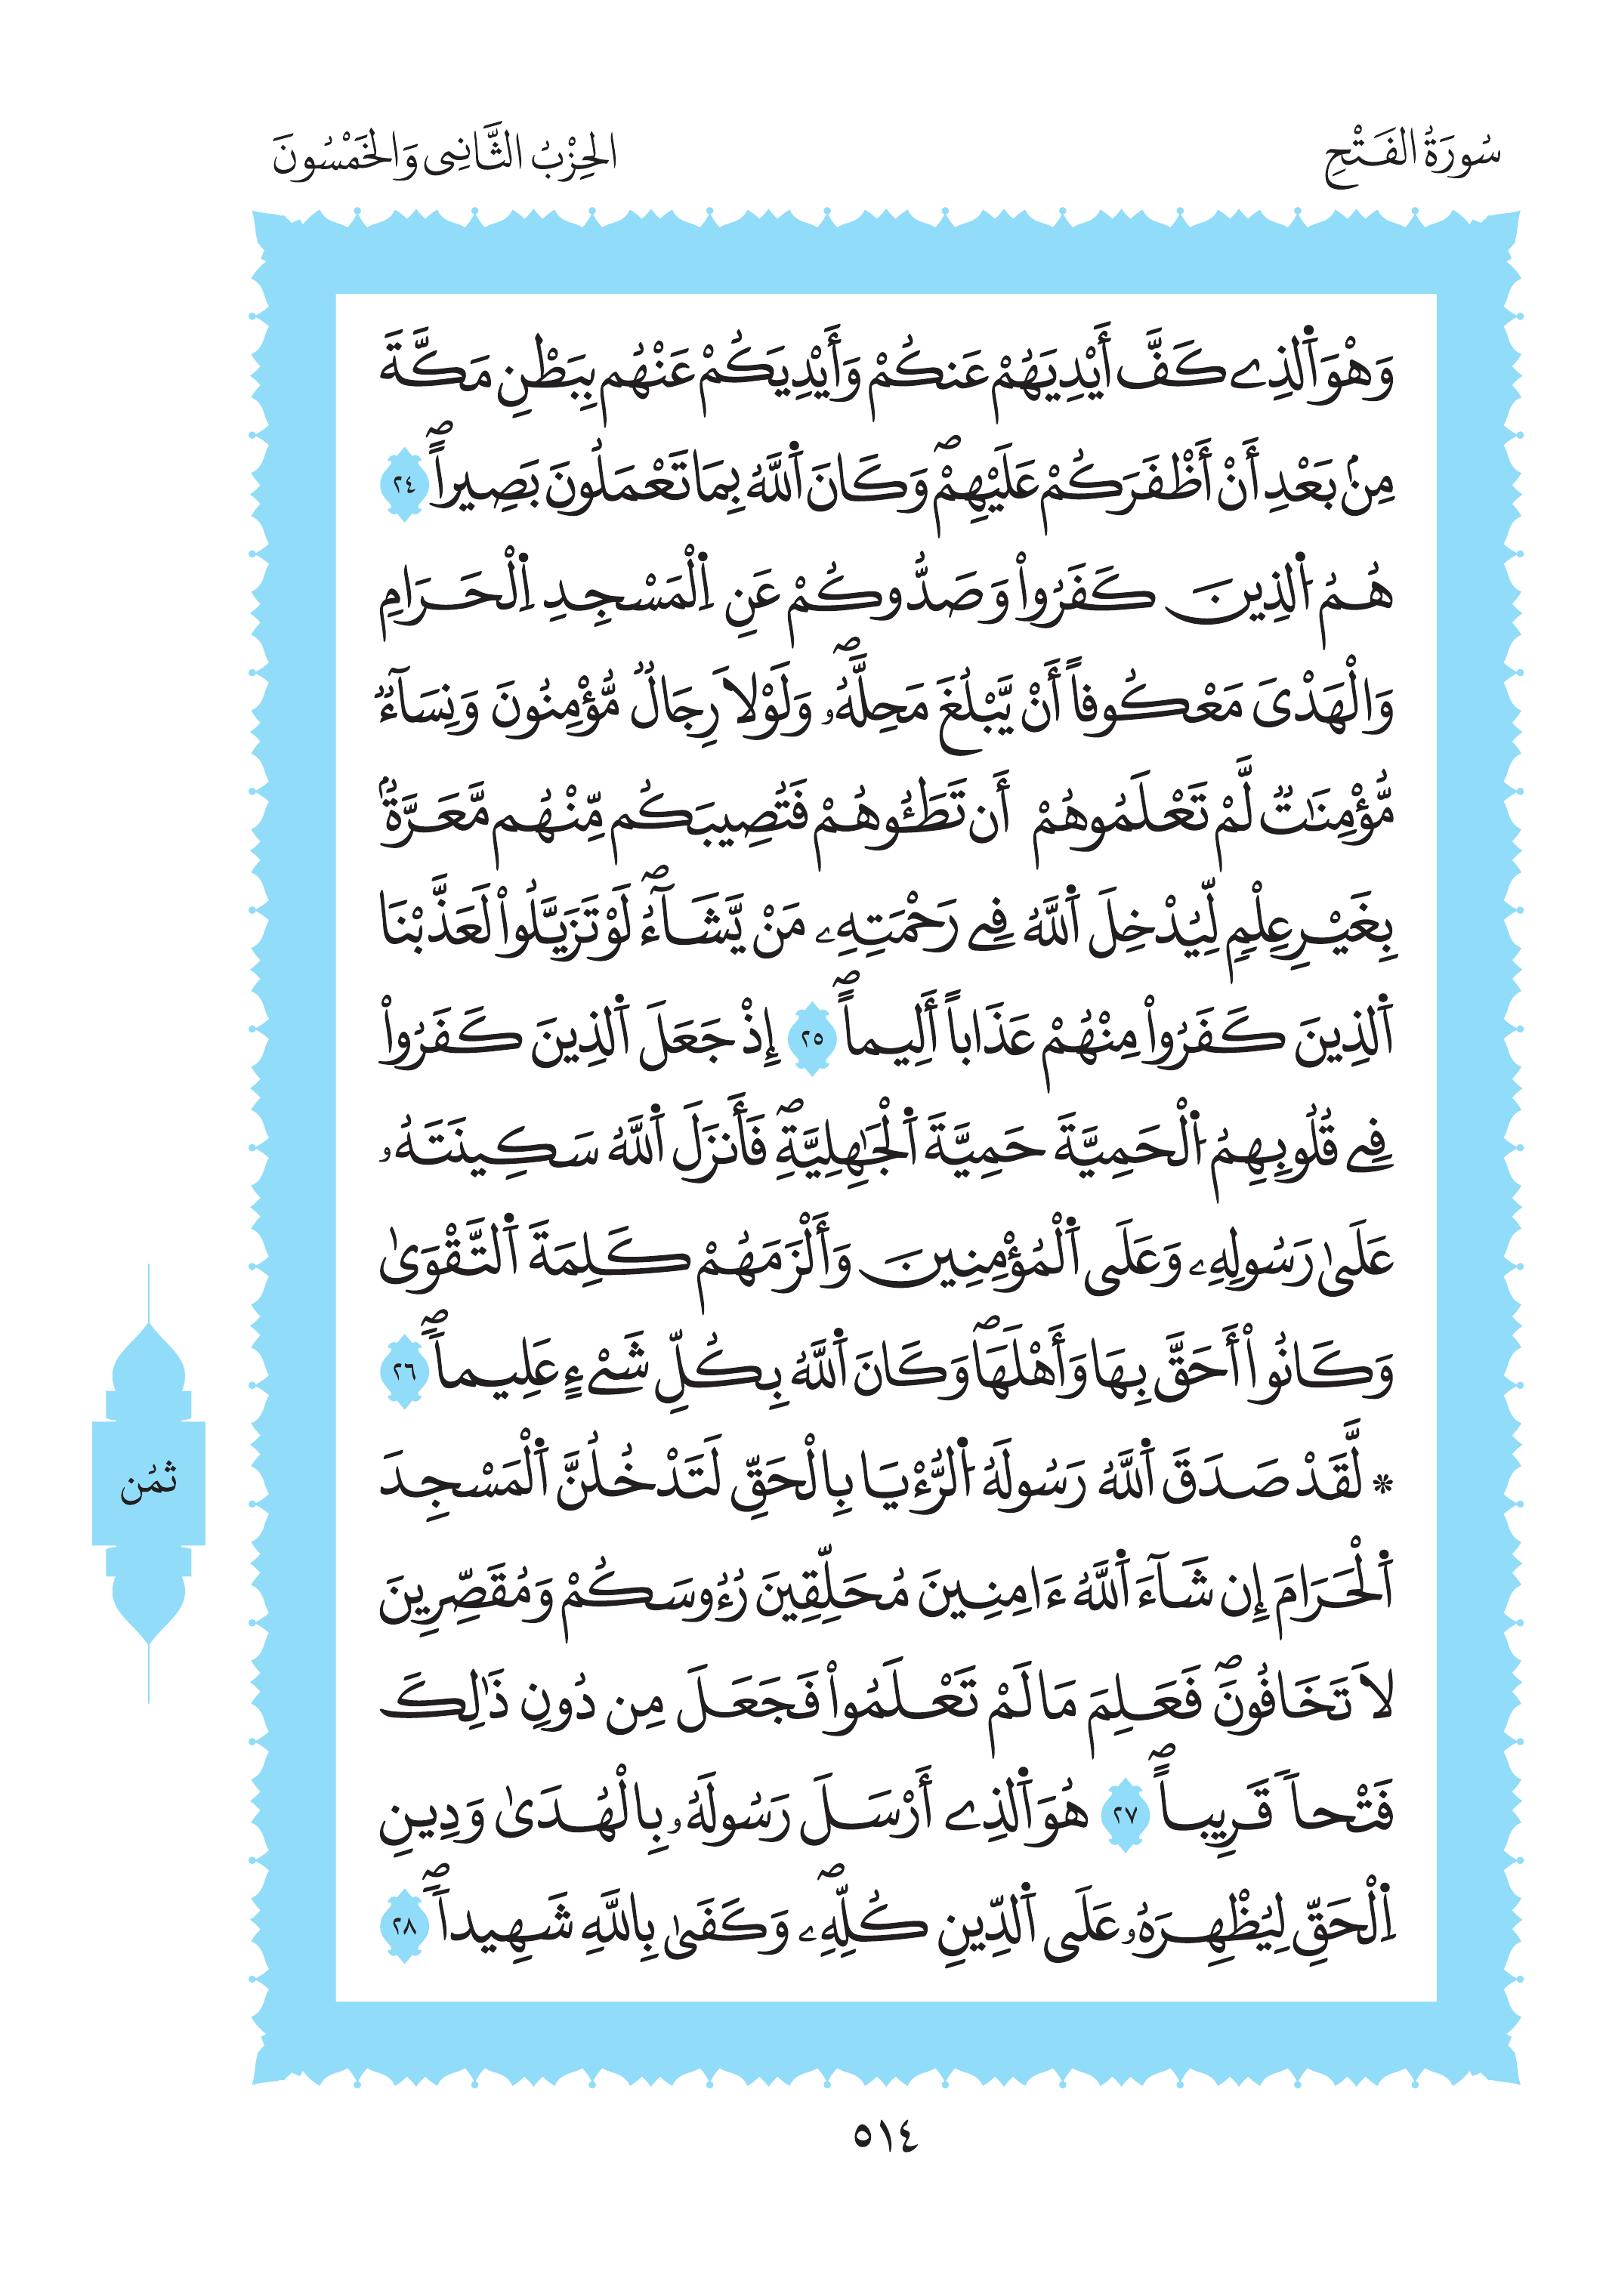 سُورَةُ الفَتْحِ
الحِزْبُ الثَّانِي وَالخَمْسُونَ
وَهْوَ اَ۬لذِے كَفَّ أَيْدِيَهُمْ عَنكُمْ وَأَيْدِيَكُمْ عَنْهُم بِبَطْنِ مَكَّةَ
مِنۢ بَعْدِ أَنْ أَظْفَرَكُمْ عَلَيْهِمْۖ وَكَانَ اَ۬للَّهُ بِمَا تَعْمَلُونَ بَصِيراًۖ ٢٤
هُمُ اُ۬لذِينَ كَفَرُواْ وَصَدُّوكُمْ عَنِ اِ۬لْمَسْجِدِ اِ۬لْحَرَامِ
وَالْهَدْىَ مَعْكُوفاً أَنْ يَّبْلُغَ مَحِلَّهُۥۖ وَلَوْلَا رِجَالٌ مُّؤْمِنُونَ وَنِسَآءٌ
مُّؤْمِنَٰتٌ لَّمْ تَعْلَمُوهُمْ أَن تَطَـُٔوهُمْ فَتُصِيبَكُم مِّنْهُم مَّعَرَّةُۢ
بِغَيْرِ عِلْمٍ لِّيُدْخِلَ اَ۬للَّهُ فِے رَحْمَتِهِۦ مَنْ يَّشَآءُۖ لَوْ تَزَيَّلُواْ لَعَذَّبْنَا
اَ۬لذِينَ كَفَرُواْ مِنْهُمْ عَذَاباً أَلِيماًۖ ٢٥ إِذْ جَعَلَ اَ۬لذِينَ كَفَرُواْ
فِے قُلُوبِهِمُ اُ۬لْحَمِيَّةَ حَمِيَّةَ اَ۬لْجَٰهِلِيَّةِۖ فَأَنزَلَ اَ۬للَّهُ سَكِينَتَهُۥ
عَلَىٰ رَسُولِهِۦ وَعَلَى اَ۬لْمُؤْمِنِينَ وَأَلْزَمَهُمْ كَلِمَةَ اَ۬لتَّقْوَىٰ
وَكَانُواْ أَحَقَّ بِهَا وَأَهْلَهَاۖ وَكَانَ اَ۬للَّهُ بِكُلِّ شَےْءٍ عَلِيماًۖ ٢٦
* لَّقَدْ صَدَقَ اَ۬للَّهُ رَسُولَهُ اُ۬لرُّؤْيَا بِالْحَقِّ لَتَدْخُلُنَّ اَ۬لْمَسْجِدَ
اَ۬لْحَرَامَ إِن شَآءَ اَ۬للَّهُ ءَامِنِينَ مُحَلِّقِينَ رُءُوسَكُمْ وَمُقَصِّرِينَ
لَا تَخَافُونَۖ فَعَلِمَ مَا لَمْ تَعْلَمُواْ فَجَعَلَ مِن دُونِ ذَٰلِكَ
فَتْحاً قَرِيباًۖ ٢٧ هُوَ اَ۬لذِے أَرْسَلَ رَسُولَهُۥ بِالْهُدَىٰ وَدِينِ
اِ۬لْحَقِّ لِيُظْهِرَهُۥ عَلَى اَ۬لدِّينِ كُلِّهِۦۖ وَكَفَىٰ بِاللَّهِ شَهِيداًۖ ٢٨
ثمُن
٥١٤